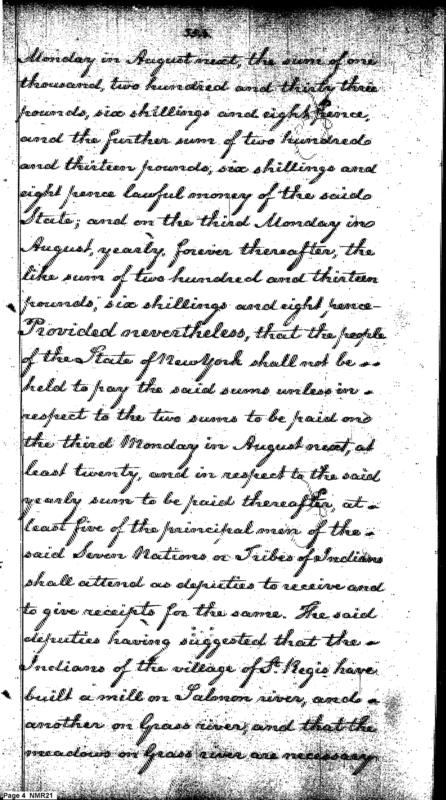 Monday in August next, the sum of one
thousand, two hundred and thirty three
pounds, six shillings and eight pence,
and the further sum of two hundred
and thirteen pounds, six shillings and
eight pence lawful money of the said
State; and on the third Monday in
August, yearly, forever thereafter, the
like sum of two hundred and thirteen
pounds, six shillings and eight pence—
Provided nevertheless, that the people
of the State of New York shall not be
held to pay the said sums unless in
respect to the two sums to be paid on
the third Monday in August next, at
least twenty, and in respect to the said
yearly sum to be paid thereafter, at
least five of the principal men of the
said Seven Nations or Tribes of Indians
shall attend as deputies to receive and
to give receipts for the same. The said
deputies having suggested that the
Indians of the village of St. Regis have
built a mill on Salmon river, and
another on Grass river, and that the
meadows on Grass river are necessary
Page 4 NMR21